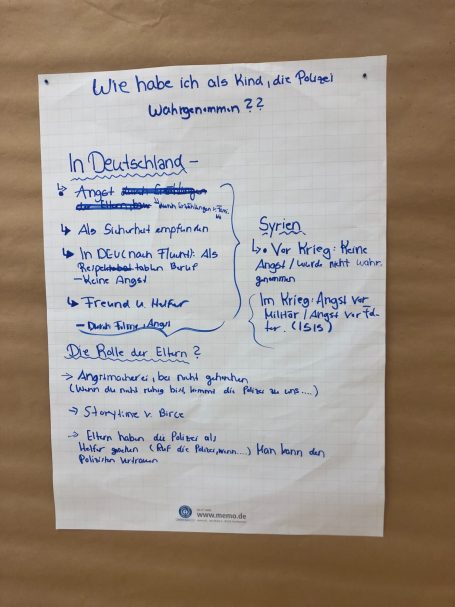 Wie habe ich als Kind, die Polizei
Wahrgenommen??
In Deutschland -
Angst
durch Erzählungen
↳ Als Sicherheit empfunden
↳ In DEU (nach Flucht): Als
Beruf
- Keine Angst
↳ Freund u. Helfer
- Durch Filme, Angst
Syrien
↳ • Vor Krieg: Keine
Angst / wurde nicht wahr.
genommen
Im Krieg: Angst vor
Militär / Angst vor Fol-
ter. (ISIS)
Die Rolle der Eltern?
→ Angstmacherei, bei nicht gehorchen
(Wenn du nicht ruhig bist, kommt die Polizei zu uns....)
→ Storytime v. Birce
→ Eltern haben die Polizei als
Helfer gesehen (Ruf die Polizei, wenn....) Man kann den
Polizisten vertrauen
www.memo.de